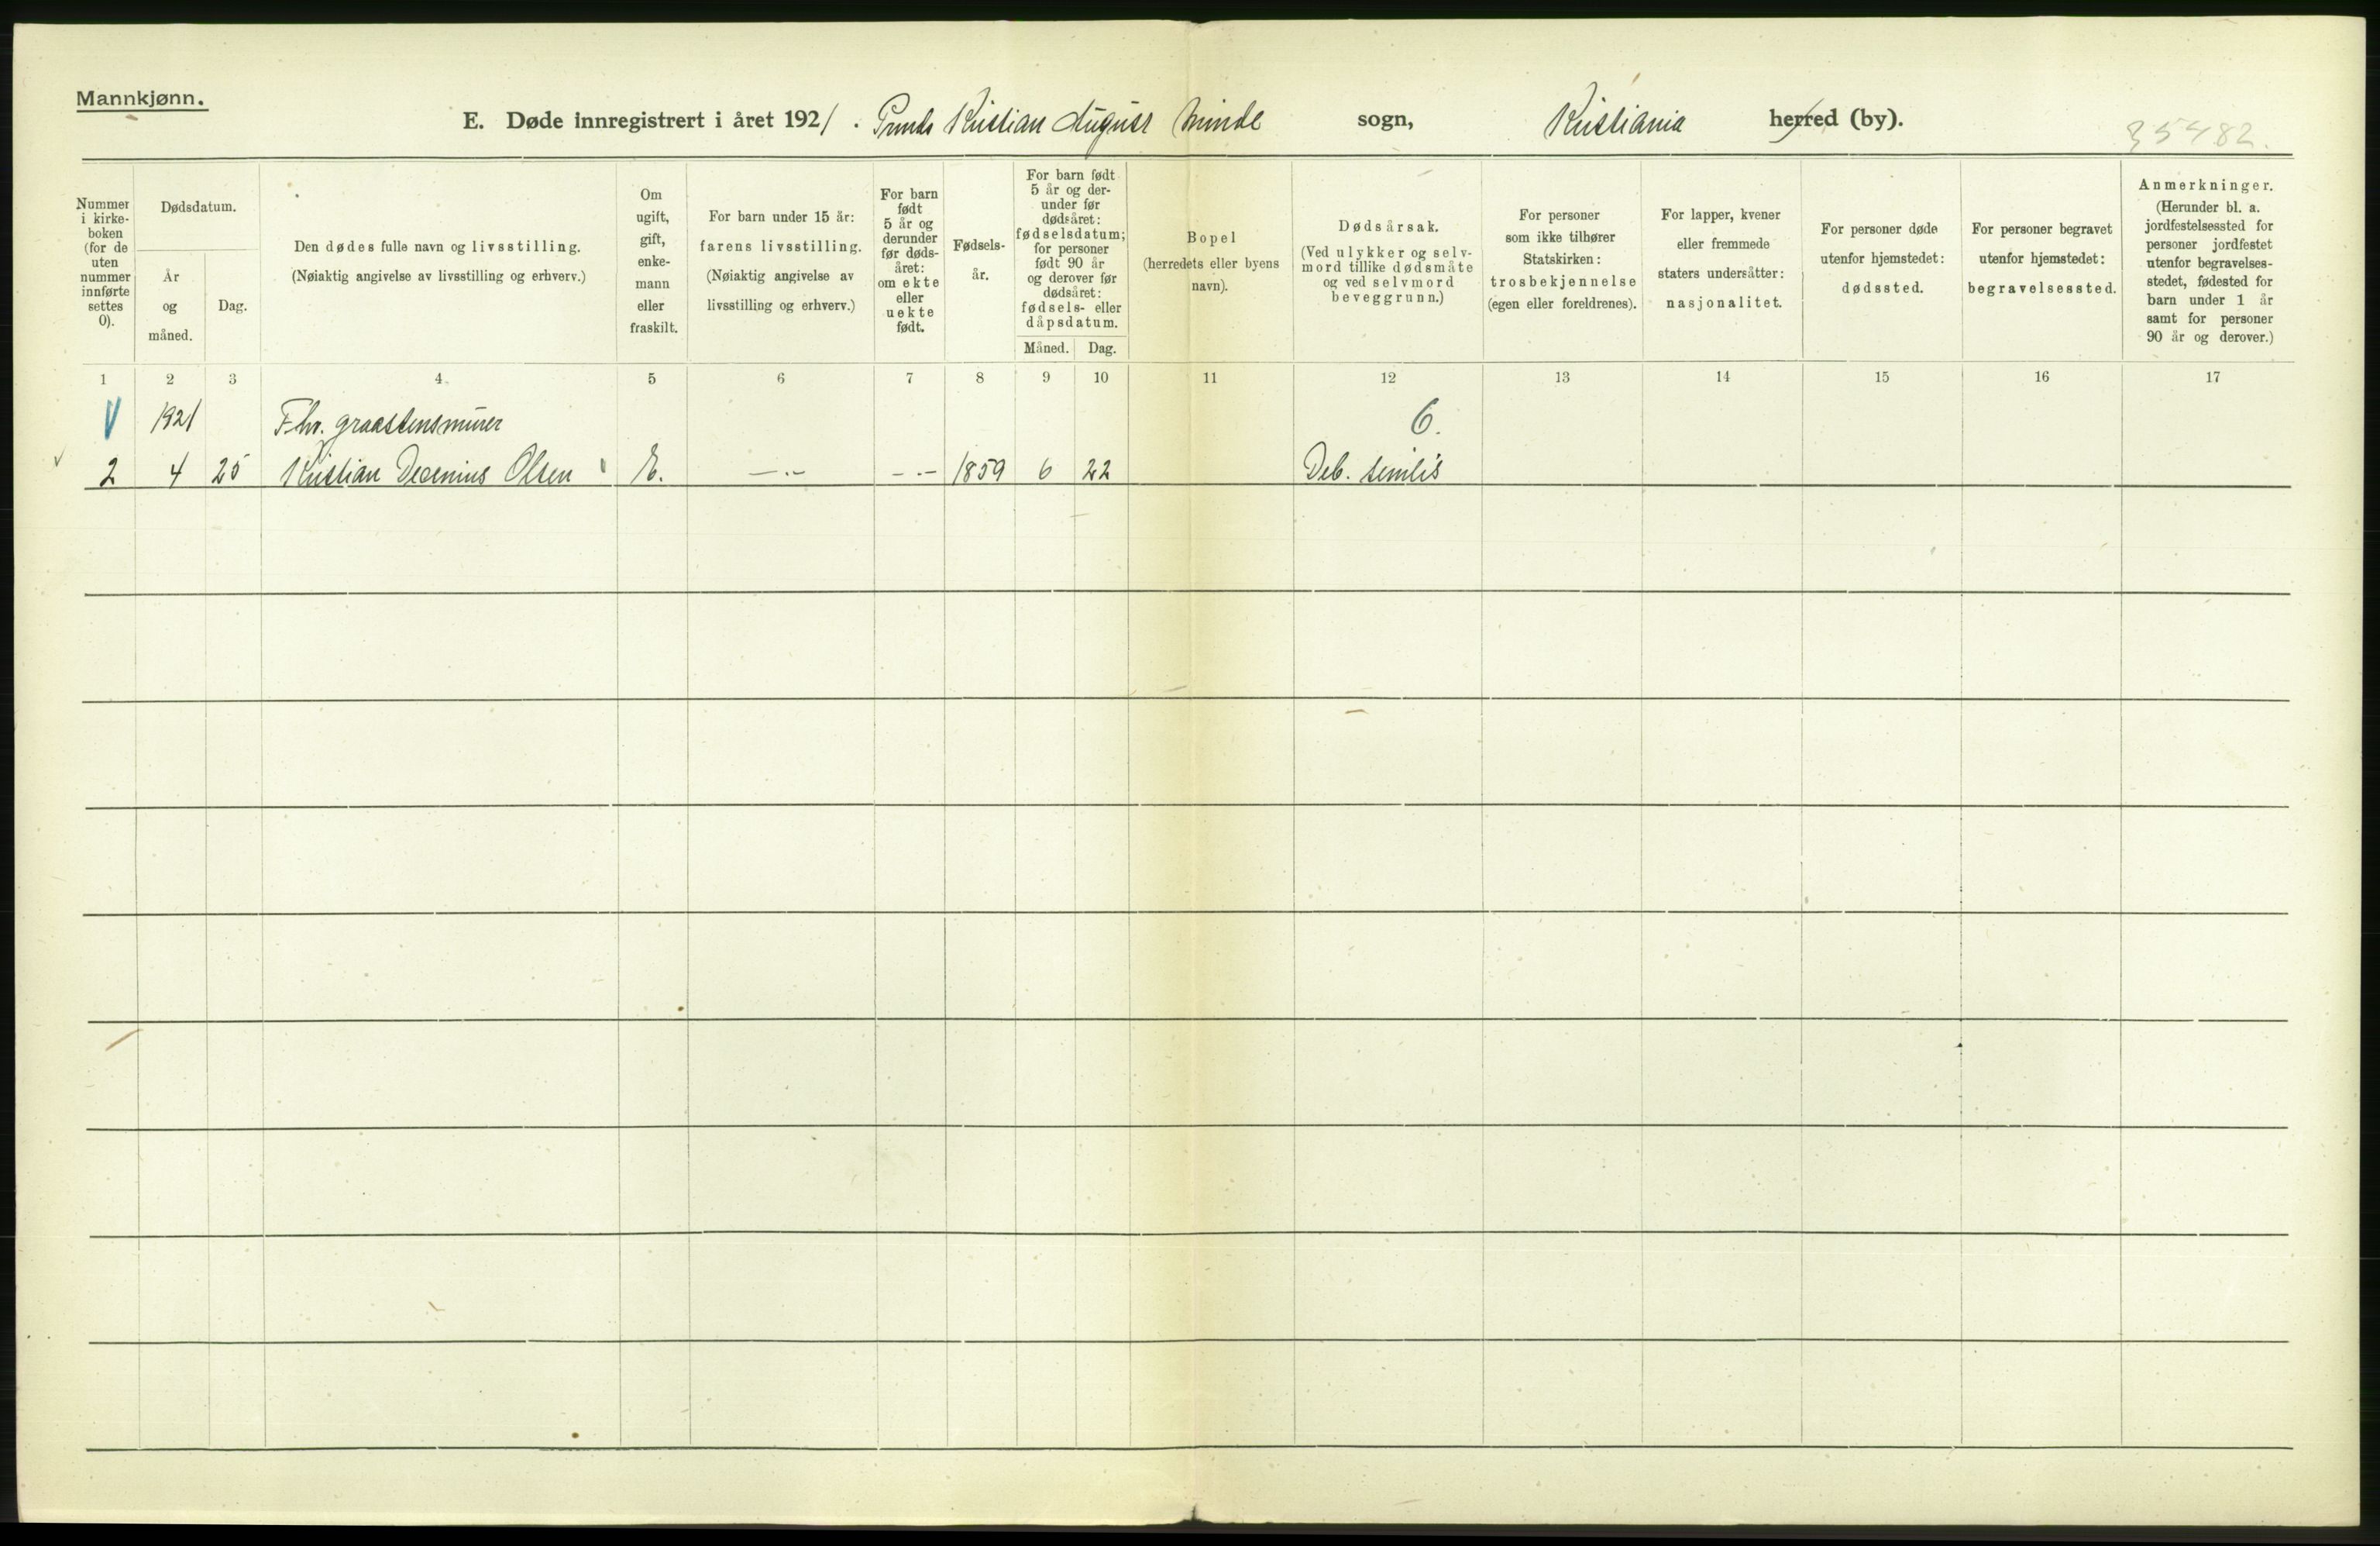 Mannkjønn.
E. Døde innregistrert i året 1921. Prinds Kristian August Minde sogn, Kristiania herred (by).
35482.
Nummer i kirkeboken (for de uten nummer innførte settes 0).
Dødsdatum.
År og måned.
Dag.
Den dødes fulle navn og livsstilling.
(Nøiaktig angivelse av livsstilling og erhverv.)
Om ugift, gift, enkemann eller fraskilt.
For barn under 15 år:
farens livsstilling.
(Nøiaktig angivelse av livsstilling og erhverv.)
For barn født 5 år og derunder før dødsåret: om ekte eller uekte født.
Fødselsår.
For barn født 5 år og derunder før dødsåret: fødselsdatum; for personer født 90 år og derover før dødsåret: fødsels- eller dåpsdatum.
Måned. Dag.
Bopel
(herredets eller byens navn).
Dødsårsak.
(Ved ulykker og selvmord tillike dødsmåte og ved selvmord beveggrunn.)
For personer som ikke tilhører Statskirken:
trosbekjennelse
(egen eller foreldrenes).
For lapper, kvener eller fremmede staters undersåtter:
nasjonalitet.
For personer døde utenfor hjemstedet:
dødssted.
For personer begravet utenfor hjemstedet:
begravelsessted.
Anmerkninger.
(Herunder bl. a. jordfestelsessted for personer jordfestet utenfor begravelsesstedet, fødested for barn under 1 år samt for personer 90 år og derover.)
1 2 3 4. 5 6 7 8 9 10 11 12 13 14 15 16 17
1921 F.hv. graastensmurer 6.
2 4 25 Kristian Decenius Olsen E. —.— —.— 1859 6 22 Deb. senilis